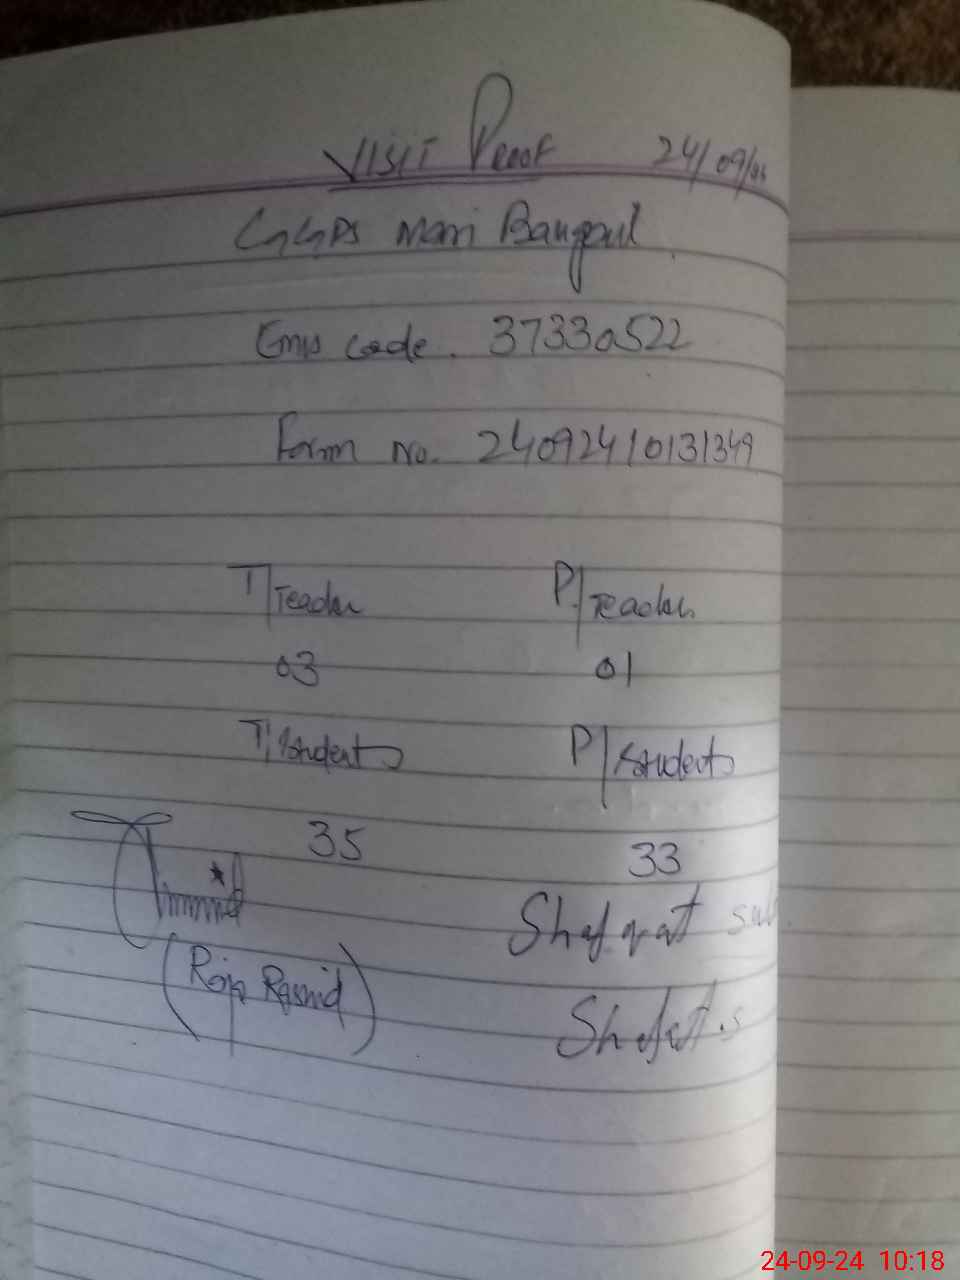 VISIT Proof 24/09/24
GGPS Mari Bangial
Emis code. 37330522
Form no. 24092410131349
T/Teacher P/Teacher
03 01
T/Students P/Students
35 33
Shafqat
(Raja Rashid)
24-09-24 10:18